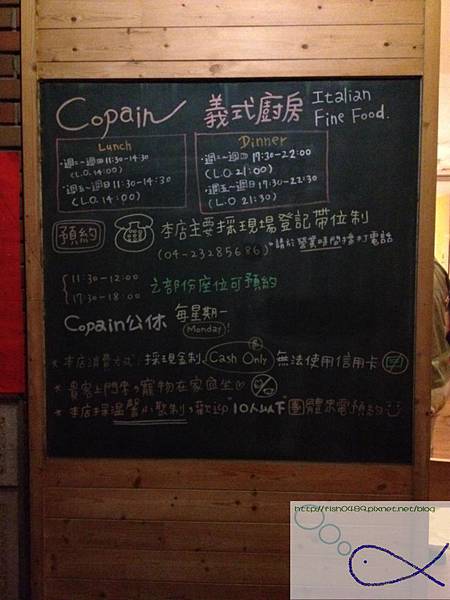 Copain 義式廚房 Italian Fine Food.
Lunch
・週二~週四 11:30-14:30
(L.O. 14:00)
・週五~週日 11:30-14:30
(L.O. 14:00)
Dinner
・週二~週四 17:30-22:00
(L.O. 21:00)
・週五~週日 17:30-22:30
(L.O. 21:30)
預約 本店主要採現場登記帶位制
(04-23285686) *請於營業時間撥打電話
11:30-12:00
17:30-18:00
之部份座位可預約
Copain公休 每星期一
(Monday)!
* 本店消費方式:採現金制 Cash Only 無法使用信用卡
* 貴客上門來,寵物在家庭坐
* 本店採溫馨小聚制,歡迎"10人以下"團體來電預約
http://fish0489.pixnet.net/blog